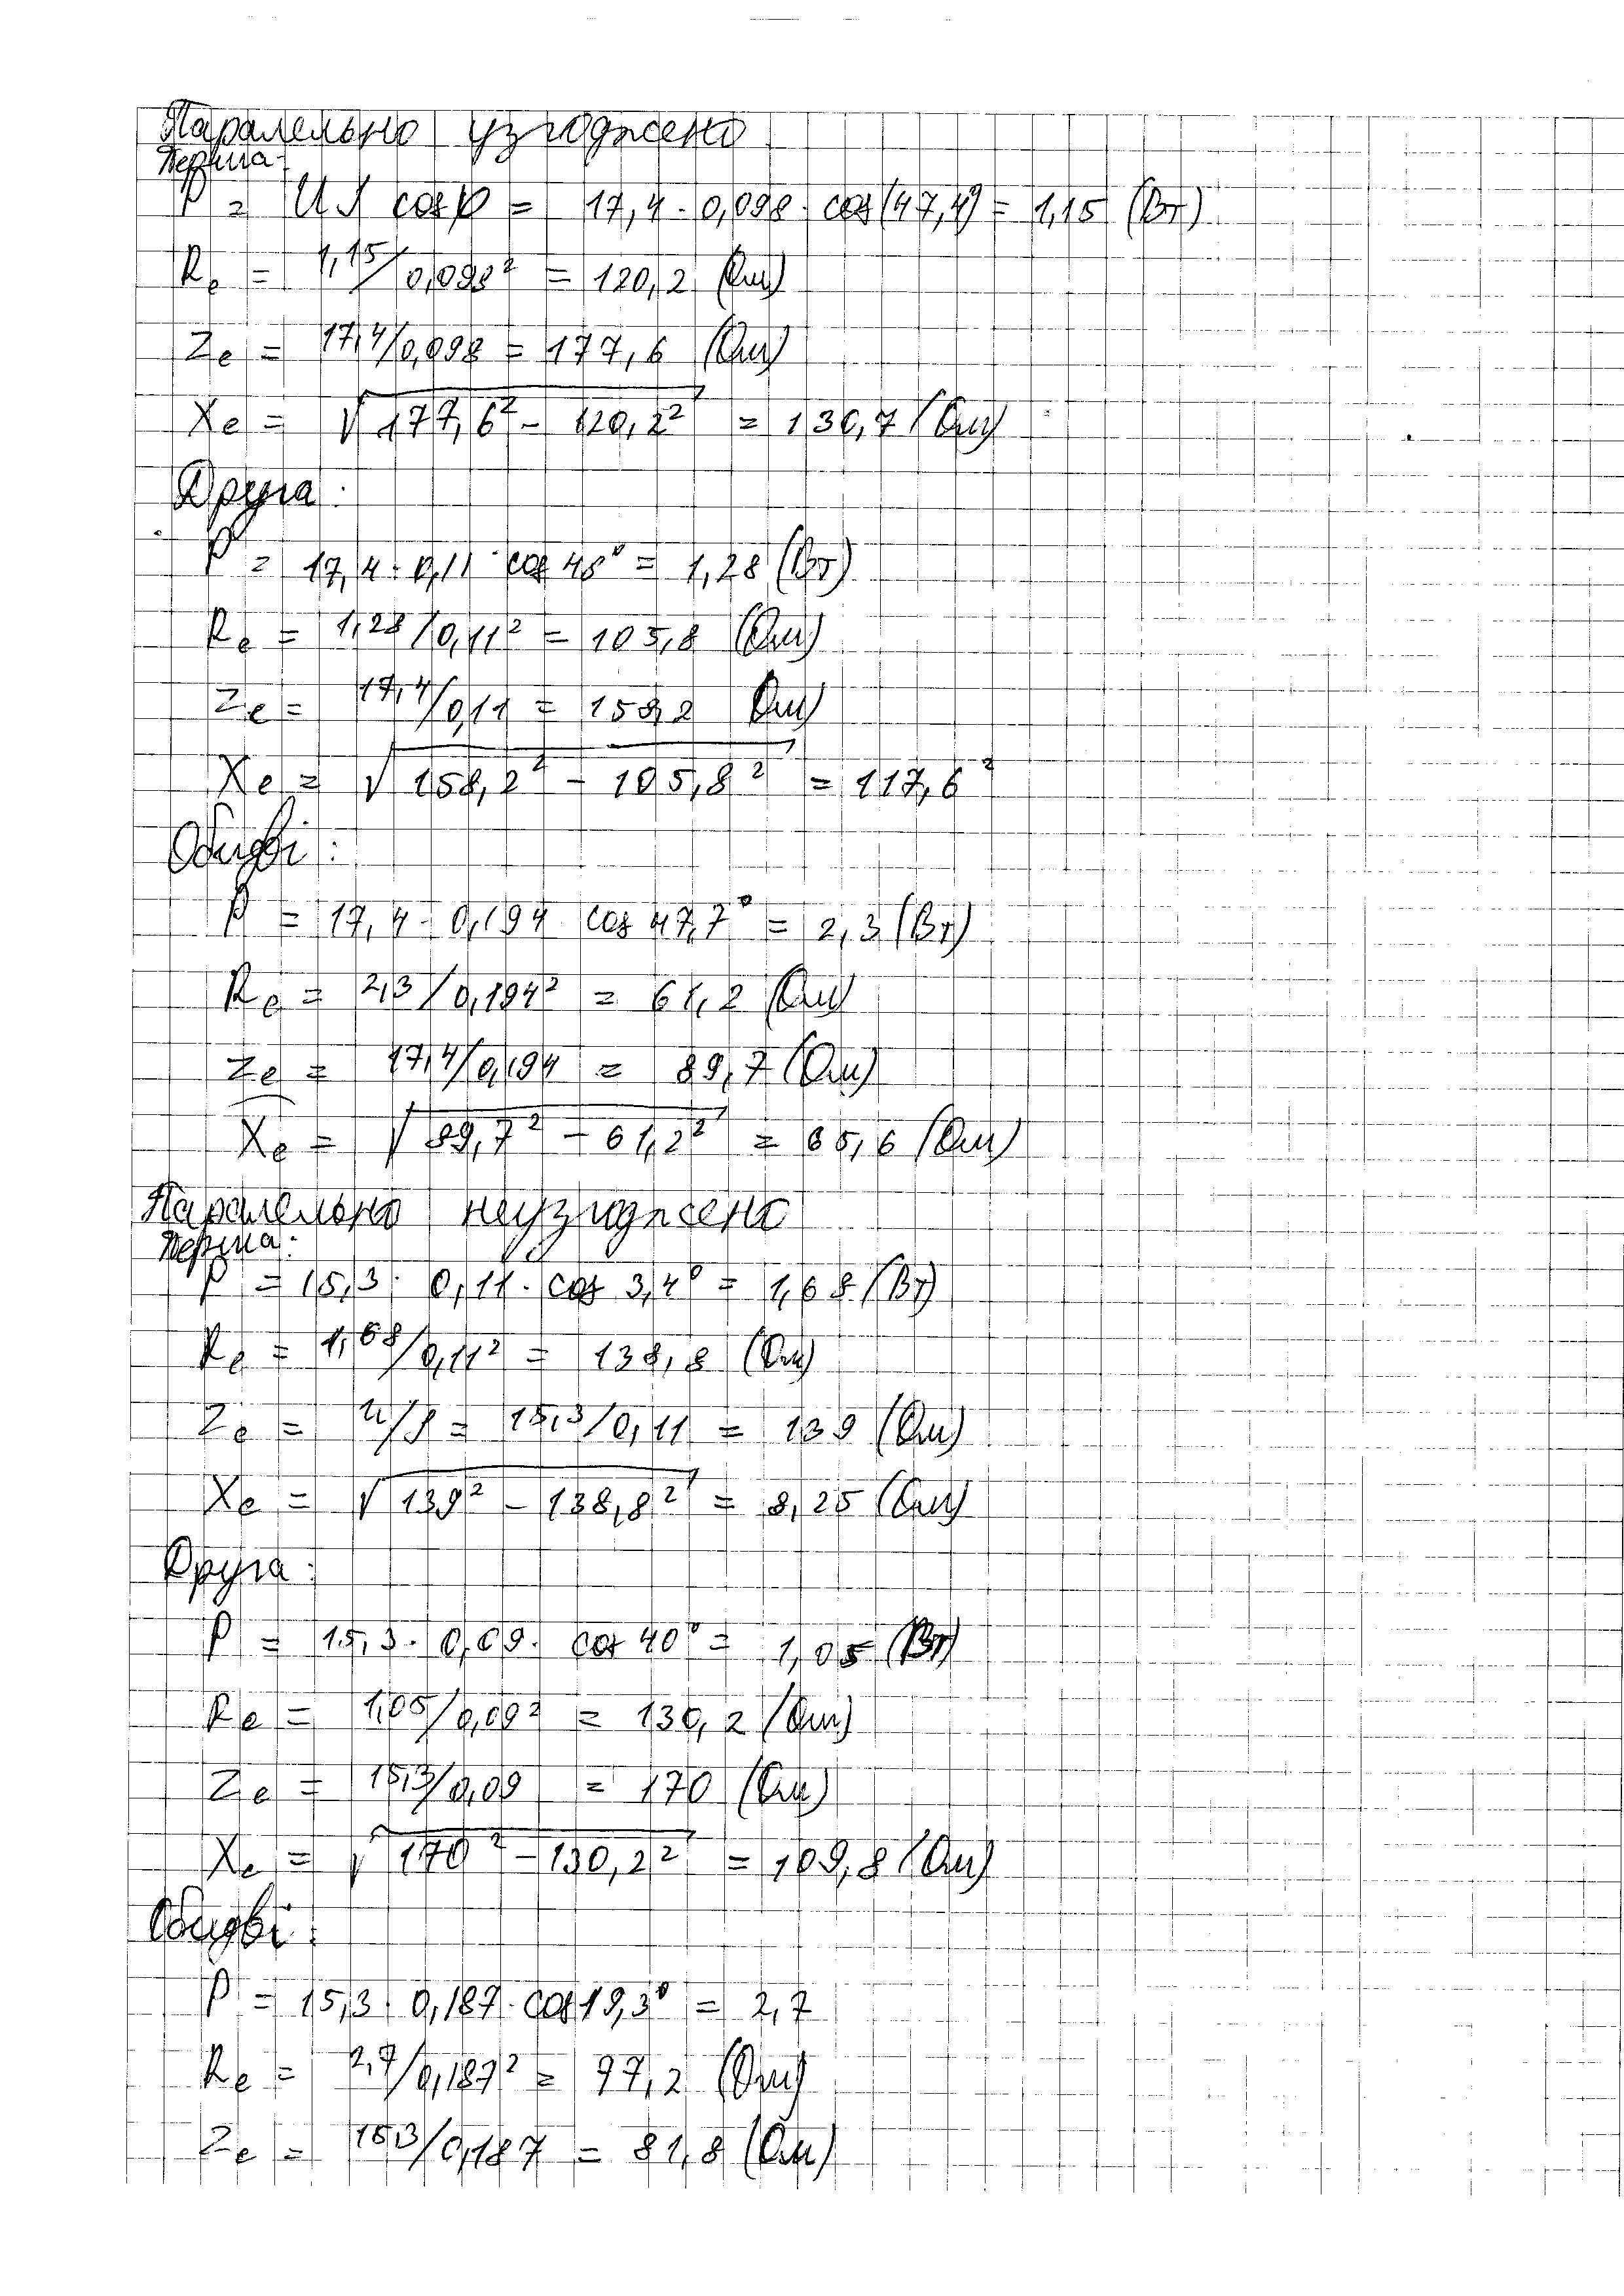 Паралельно узгоджено
Перша:
P = U I cos φ = 17,4 · 0,098 · cos(47,4°) = 1,15 (Вт)
Re = 1,15/0,098² = 120,2 (Ом)
Ze = 17,4/0,098 = 177,6 (Ом)
Xe = √177,6² - 120,2² = 130,7 (Ом)
Друга:
P = 17,4 · 0,11 · cos 48° = 1,28 (Вт)
Re = 1,28/0,11² = 105,8 (Ом)
Ze = 17,4/0,11 = 158,2 Ом)
Xe = √158,2² - 105,8² = 117,6²
Обидві:
P = 17,4 · 0,194 cos 47,7° = 2,3 (Вт)
Re = 2,3/0,194² = 61,2 (Ом)
Ze = 17,4/0,194 = 89,7 (Ом)
Xe = √89,7² - 61,2² = 65,6 (Ом)
Паралельно неузгоджено
Перша:
P = 15,3 · 0,11 · cos 3,4° = 1,68 (Вт)
Re = 1,68/0,11² = 138,8 (Ом)
Ze = U/I = 15,3/0,11 = 139 (Ом)
Xe = √139² - 138,8² = 8,25 (Ом)
Друга:
P = 15,3 · 0,09 · cos 40° = 1,05 (Вт)
Re = 1,05/0,09² = 130,2 (Ом)
Ze = 15,3/0,09 = 170 (Ом)
Xe = √170² - 130,2² = 109,8 (Ом)
Обидві:
P = 15,3 · 0,187 · cos 19,3° = 2,7
Re = 2,7/0,187² = 77,2 (Ом)
Ze = 15,3/0,187 = 81,8 (Ом)